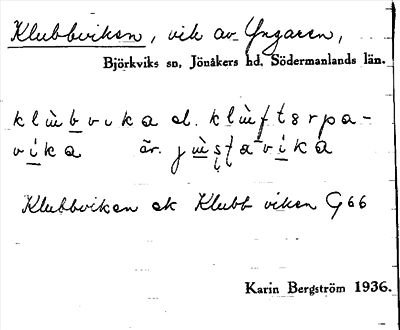 Klubbviken, vik av Yngaren,
Björkviks sn, Jönåkers hd, Södermanlands län.
klùbvika el. klùfterpa-
vika är. jùsta-vika
Klubbviken ek Klubb viken G66
Karin Bergström 1936.